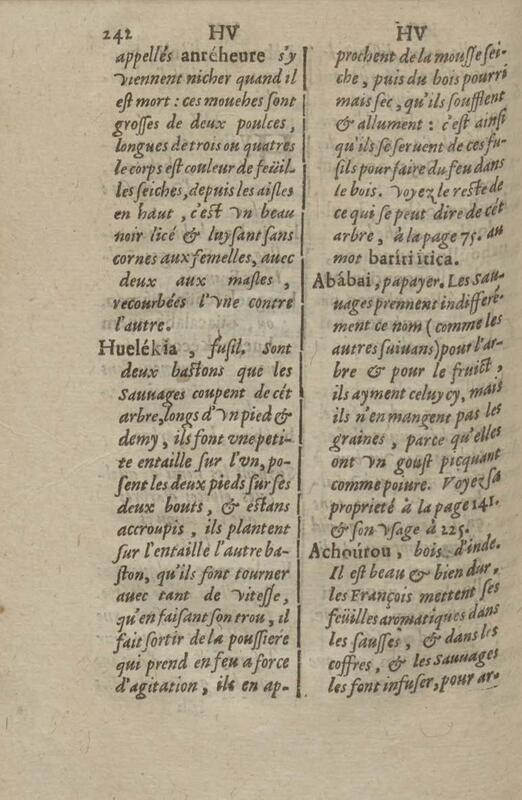 242 HV HV
appellés antéheure s'y
viennent nicher quand il
est mort : ces mouches sont
grosses de deux poulces,
longues de trois ou quatres
le corps est couleur de feüil-
les seiches, depuis les aisles
en haut, c'est vn beau
noir licé & luysant sans
cornes aux femelles, auec
deux aux masles,
recourbées l'vne contre
l'autre.
Huelékia, fusil. Sont
deux bastons que les
Sauuages coupent de cét
arbre, longs d'vn pied &
demy, ils font vne peti-
te entaille sur l'vn, po-
sent les deux pieds sur ses
deux bouts, & estans
accroupis, ils plantent
sur l'entaille l'autre ba-
ston, qu'ils font tourner
auec tant de vitesse,
qu'en faisant son trou, il
fait sortir de la poussiere
qui prend en feu a force
d'agitation, ils en ap-
prochent de la mousse sei-
che, puis du bois pourri
mais sec, qu'ils soufflent
& allument : c'est ainsi
qu'ils se seruent de ces fu-
sils pour faire du feu dans
le bois. Voyez le reste de
ce qui se peut dire de cét
arbre, à la page 75. au
mot batiti itica.
Abábai, papayer. Les Sau-
uages prennent indifferé-
ment ce nom (comme les
autres suiuans) pour l'ar-
bre & pour le fruict,
ils ayment celuy cy, mais
ils n'en mangent pas les
graines, parce qu'elles
ont vn goust picquant
comme poiure. Voyez sa
proprieté à la page 141.
& son vsage à 225.
Achoúrou, bois d'inde.
Il est beau & bien dur,
les François mettent ses
feüilles aromatiques dans
les sausses, & dans les
coffres, & les Sauuages
les font infuser, pour ar-